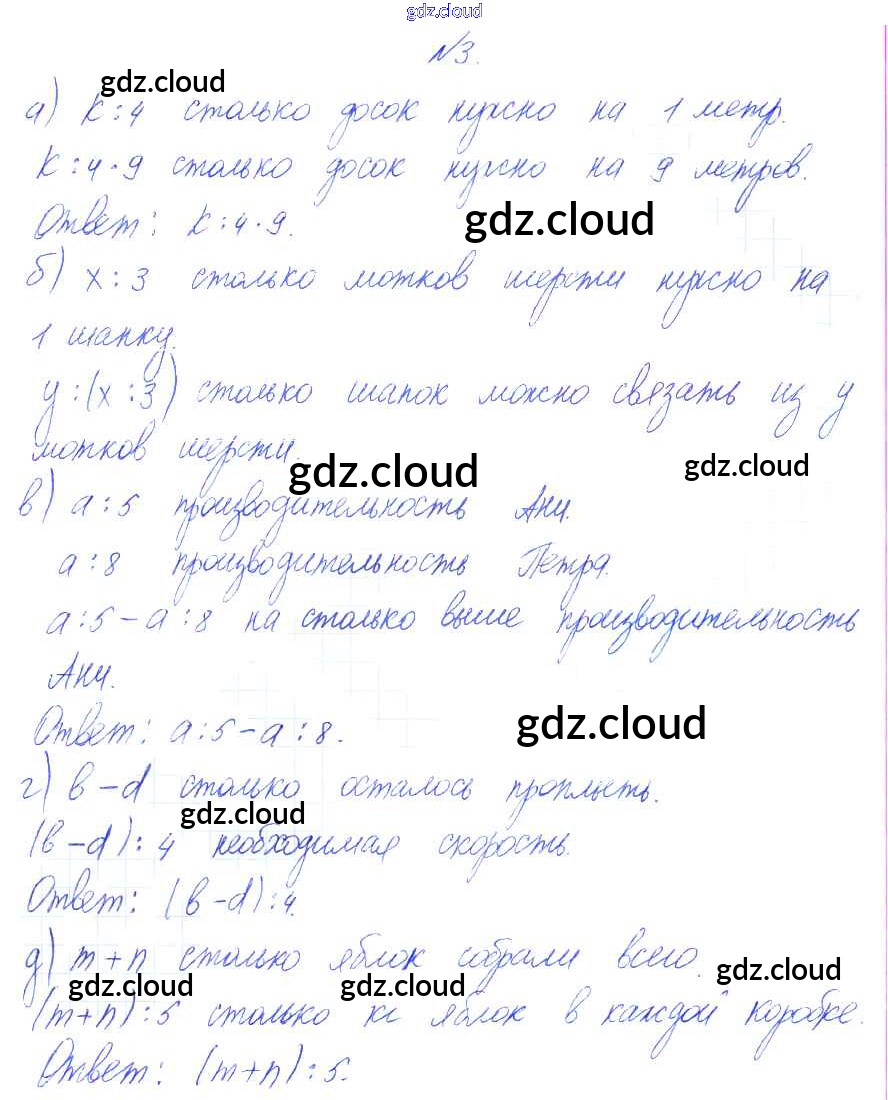 gdz.cloud
№3.
gdz.cloud
а) k:4 столько досок нужно на 1 метр.
k:4·9 столько досок нужно на 9 метров.
Ответ: k:4·9.
gdz.cloud
б) x:3 столько мотков шерсти нужно на
1 шапку.
y:(x:3) столько шапок можно связать из y
мотков шерсти.
gdz.cloud
gdz.cloud
в) a:5 производительность Ани.
a:8 производительность Петра.
a:5-a:8 на столько выше производительность
Ани.
Ответ: a:5-a:8.
gdz.cloud
г) b-d столько осталось проплыть.
gdz.cloud
(b-d):4 необходимая скорость.
Ответ: (b-d):4.
д) m+n столько яблок собрали всего.
gdz.cloud
gdz.cloud
gdz.cloud
(m+n):5 столько кг яблок в каждой коробке.
Ответ: (m+n):5.